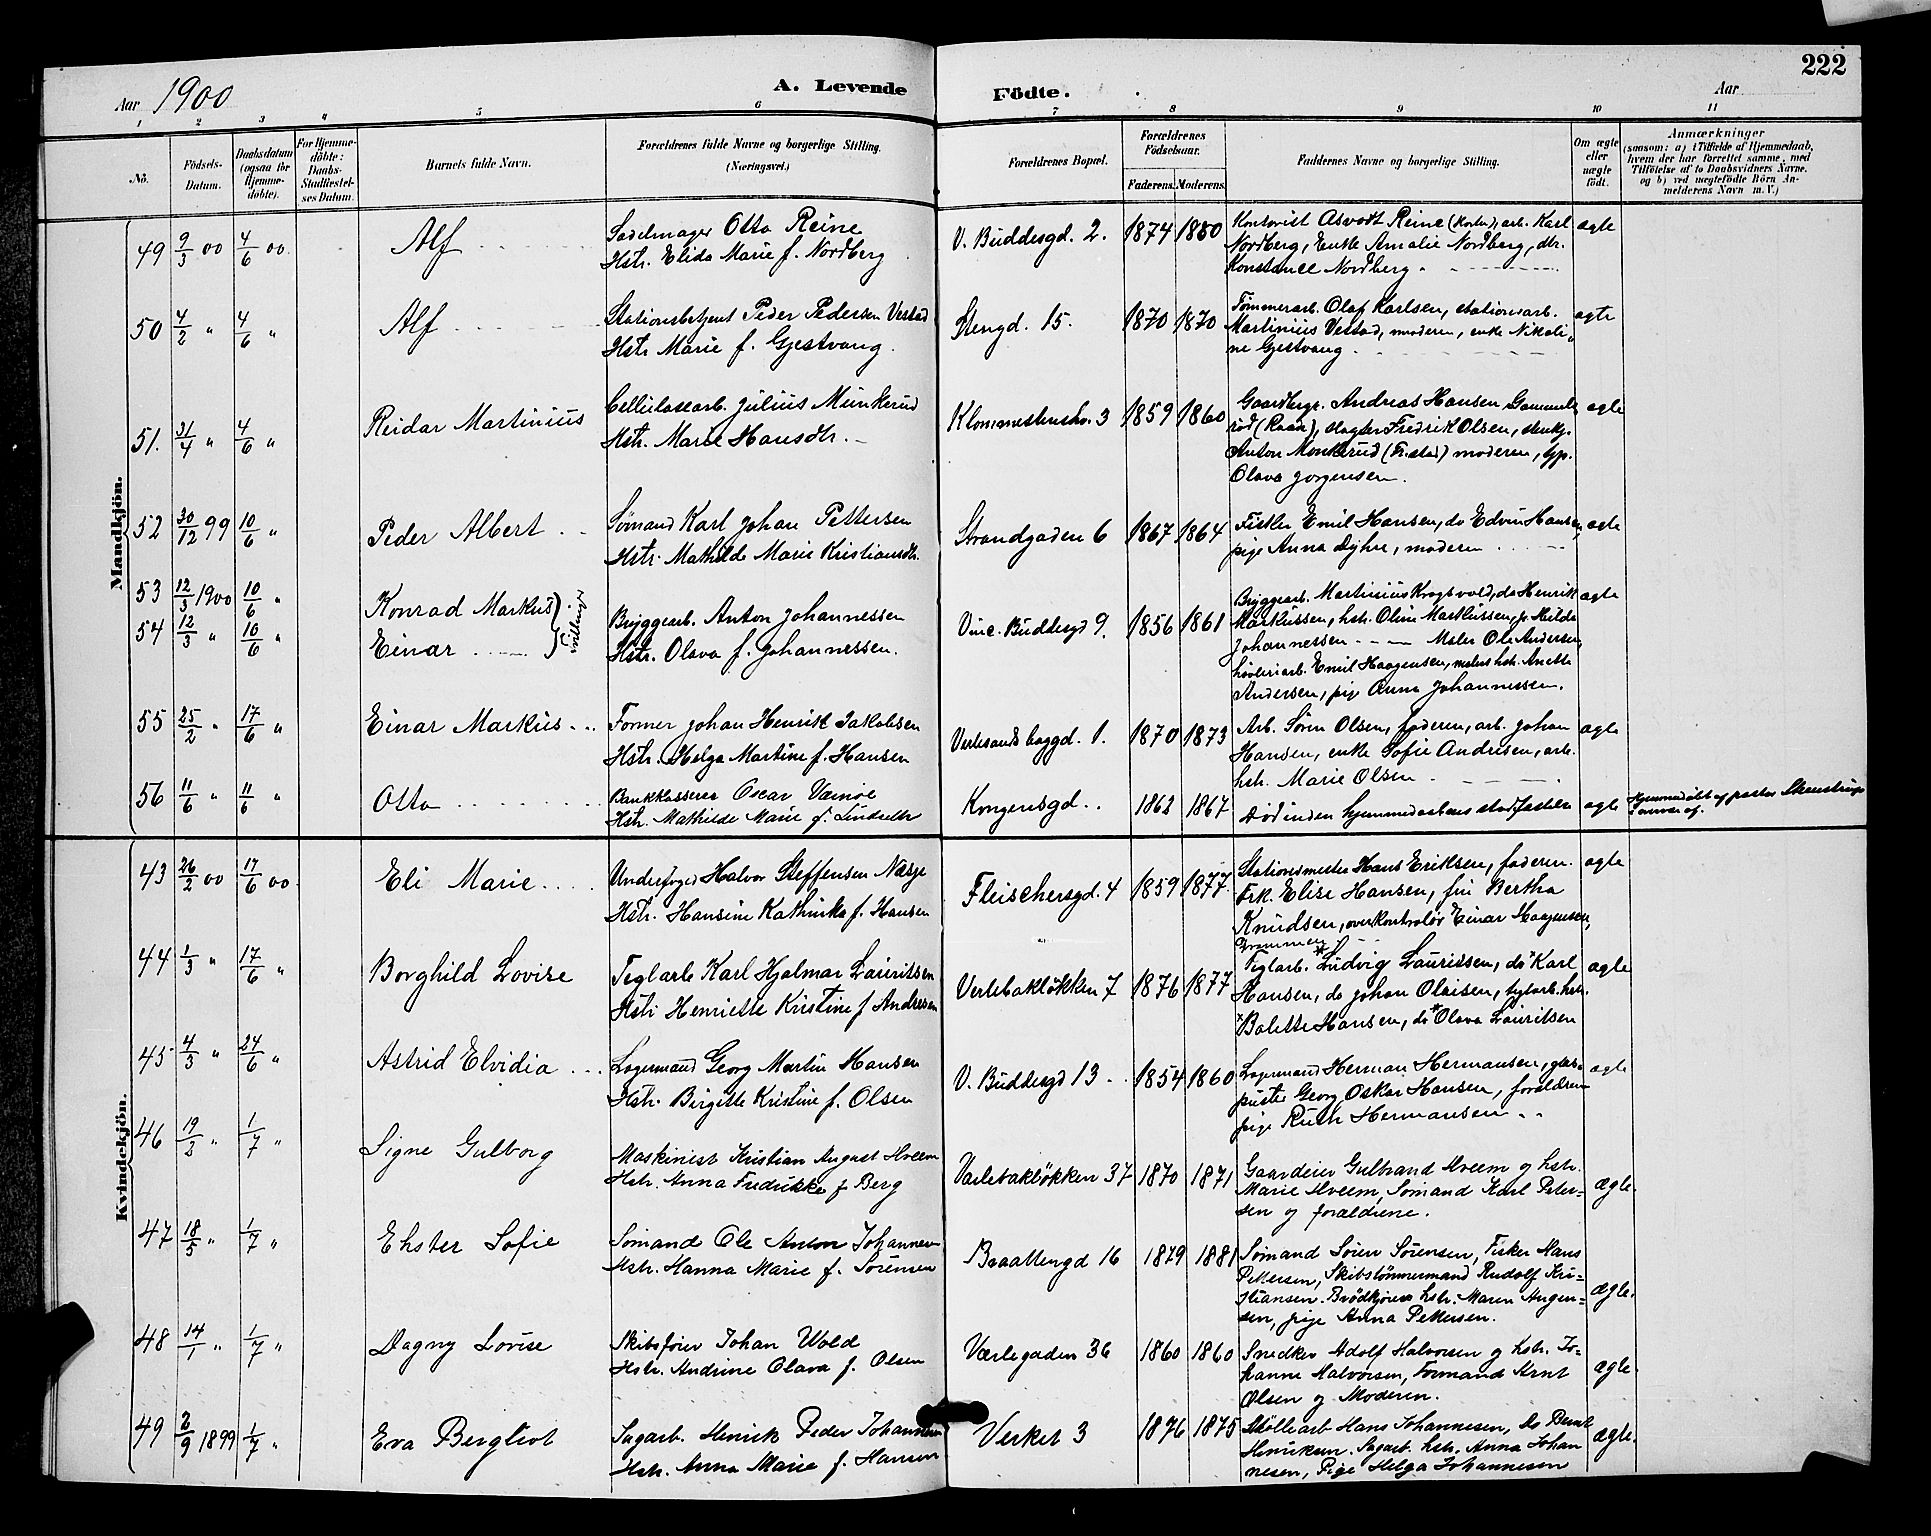 222
Aar 1900
A. Levende Födte.
Aar
1 2 3 4 5 6 7 8 9 10 11
No.
Födsels-Datum.
Daabsdatum (ogsaa for Hjemme-döbte).
For Hjemme-döbte: Daabs-Stadfæstel-ses Datum.
Barnets fulde Navn.
Forældrenes fulde Navne og borgerlige Stilling. (Næringsvei.)
Forældrenes Bopæl.
Forældrenes Födselsaar.
Faderens. Moderens.
Faddernes Navne og borgerlige Stilling.
Om ægte eller uægte født.
Anmærkninger
(saasom: a) i Tilfælde af Hjemmedaab, hvem der har forrettet samme, med Tilföielse af to Daabsvidners Navne. og b) ved uægtefödte Börn An-melderens Navn m. V.)
Mandkjön.
49 9/3 00 4/6 00. Alf
Sadelmager Otto Reine
Hstr. Elida Marie f. Nordberg
V. Buddesgd. 2. 1874 1880
Kontorist Asvodt Reine arb. Karl
Nordberg, Enke Amalie Nordberg, dtr.
Konstance Nordberg.
ægte
50 4/2 " 4/6 " Alf
Stationsbetjent Peder Pedersen Vestad
Hstr. Marie f. Gjestvang.
Stengd. 15. 1870 1870
Tømmerarb. Olaf Karlsen, stationsarb.
Martinius Vestad, moderen, enke Nikoli-
ne Gjestvang
ægte
51. 31/4 " 4/6 " Reidar Martinius
Cellulosearb. Julius Munkerud
Hstr. Marie Hansdtr.
3 1859 1860
Gaardbrgr. Andreas Hansen Gammels
rød (Raade), slagter Fredrik Olsen, stenhg.
Anton Monkerud (Fr.stad) moderen,
Olava Jorgensen.
ægte
52 30/12 99 10/6 " Peder Albert
Sømand Karl Johan Pettersen
Hstr. Mathilde Marie Kristiansdtr.
Strandgaden 6 1867 1864
Fisker Emil Hansen, do Edvin Hansen,
pige Anna Dyhre, moderen
ægte
53 12/3 1900 10/6 " Konrad Markus
54 12/3 " 10/6 " Einar
Tvillinger
Bryggearb. Anton Johannessen
Hstr. Olava f. Johannessen.
Vinc. Buddesgd 9. 1856 1861
Bryggearb. Martinius Krogsvold, do Henrik
Markussen, hstr. Oline Markussen, p. Hilda
Johannessen Maler Ole Andersen,
høvleriarb. Emil Haagensen, malers hstr. Anette
Andersen, pige Anna Johannessen.
ægte
55 25/2 " 17/6 " Einar Markus
Former Johan Henrik Jakobsen
Hstr. Helga Martine f. Hansen
Verlesands baggd. 1. 1870 1873
Arb. Søren Olsen, faderen, arb. Johan
Hansen, enke Sofie Andresen, arb.
hstr. Marie Olsen
ægte
56 11/6 " 11/6 " Otto
Bankkasserer Oscar Værnøe
Hstr. Mathilde Marie f. Lindseth
Kongensgd. 1862 1867
Død inden hjemmedaabens stadfæstelse
ægte
Hjemmedøbt af pastor Stenstrup
Kvindekjön.
43 26/2 00 17/6 00. Eli Marie
Underfoged Halvor Steffensen Næsje
Hstr. Hansine Kathinka f. Hansen
Fleischersgd. 4 1859 1877.
Stationsmester Hans Eriksen, faderen.
Frk. Elise Hansen, fru Bertha
Knudsen, overkontrolør Einar Haagensen,
Drammen
ægte
44 1/3 " 17/6 " Borghild Lovise
Teglarb Karl Hjalmar Lauritsen
Hstr Henriette Kristine f Andresen
Verlebakløkken 7 1876 1877
Teglarb. Ludvig Lauritsen, do Karl
Hansen, do Johan Olaisen, teglarb. hstr.
Bolette Hansen, do Olava Lauritsen
ægte
45 4/3 " 24/6 " Astrid Elvidia
Lagermand Georg Martin Hansen
Hstr. Birgitte Kristine f. Olsen
V. Buddesgd 13 1854 1860
Lagermand Herman Hermansen, glas-
puster Georg Oskar Hansen, forældrene
pige Ruth Hermansen
ægte
46 19/2 " 1/7 " Signe Gulborg
Maskinist Kristian August Hveem
Hstr. Anna Fredrikke f Berg
Værlebakløkken 37 1870 1871
Gaardeier Gulbrand Hveem og hstr.
Marie Hveem, Sømand Karl Peter-
sen og forældrene.
ægte.
47 18/5 " 1/7 " Ehster Sofie
Sømand Ole Anton Johannesen
Hstr. Hanna Marie f. Sørensen
Baattengd 16 1879 1881
Sømand Søren Sørensen, Fisker Hans
Pettersen, Skibstømmermand Rudolf Kri-
stiansen. Brødkjører hstr. Maren Augen-
sen, pige Anna Pettersen.
ægte.
48 14/1 " 1/7 " Dagny Lovise
Skibsfører Johan Wold
Hstr. Andrine Olava f. Olsen
Værlegaden 36 1860 1860
Snedker Adolf Halvorsen og hstr. Jo-
hanne Halvorsen, Formand Arnt
Olsen og Moderen.
ægte
49 2/9 1899 1/7 " Eva Bergliot
Sagarb. Henrik Peder Johannesen
Hstr. Anna Marie f. Hansen
Verket 3 1876 1875
Møllearb Hans Johannesen, Do Bernt
Henriksen. Sagarb. hstr. Anna Johan
nesen, Pige Helga Johannesen
ægte.